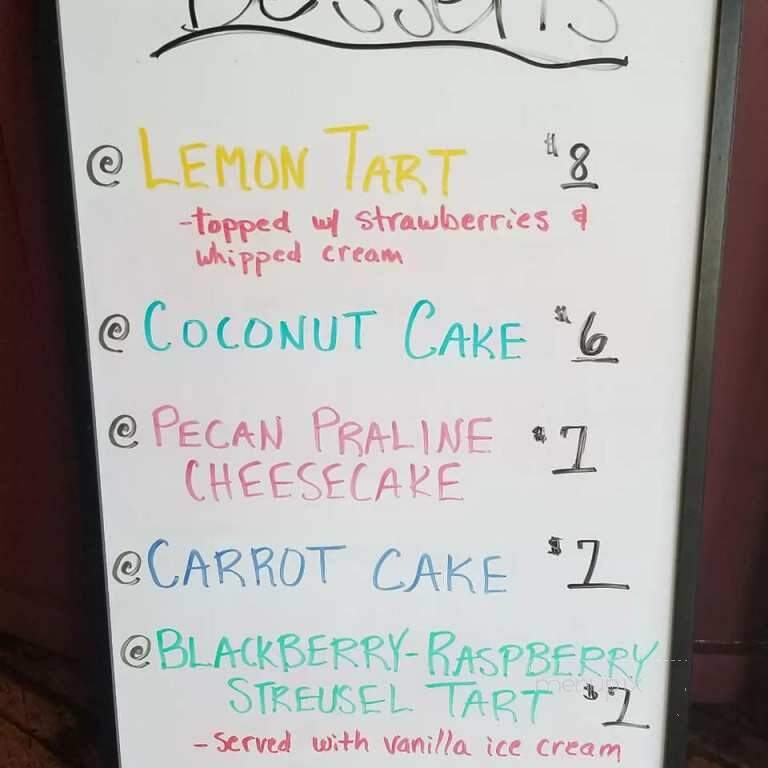 Desserts
@ LEMON TART $8
-topped w/ strawberries &
whipped cream
@ COCONUT CAKE $6
@ PECAN PRALINE $7
CHEESECAKE
@ CARROT CAKE $7
@ BLACKBERRY-RASPBERRY
STREUSEL TART $7
-served with vanilla ice cream